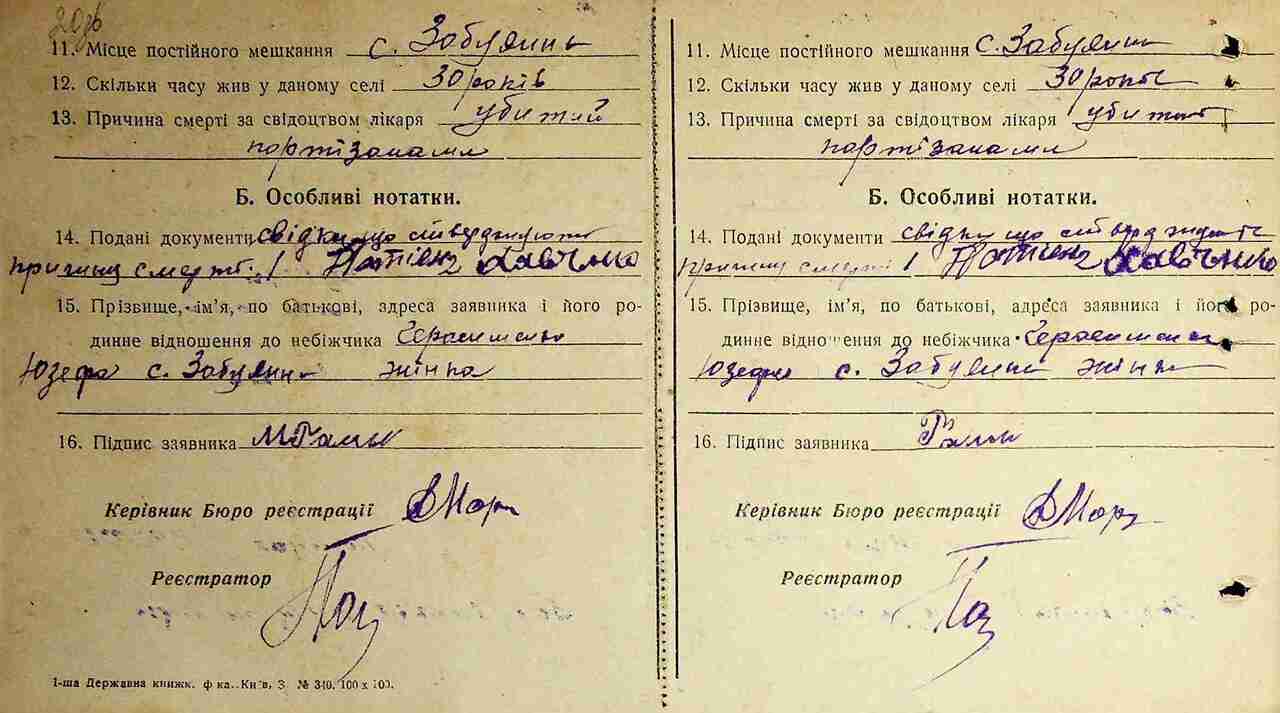 11. Місце постійного мешкання с. Забуянь
12. Скільки часу жив у даному селі 30 років
13. Причина смерті за свідоцтвом лікаря убитий
партізанами
Б. Особливі нотатки.
14. Подані документи свідки що стверджують
причину смерті 1 2
15. Прізвище, ім’я, по батькові, адреса заявника і його ро-
динне відношення до небіжчика
Юзефа с. Забуяння жінка
16. Підпис заявника
Керівник Бюро реєстрації
Реєстратор
1-ша Державна книжк. ф-ка. Київ, З. № 340. 100 x 100.
11. Місце постійного мешкання с. Забуянь
12. Скільки часу жив у даному селі 30 років
13. Причина смерті за свідоцтвом лікаря убитий
партізанами
Б. Особливі нотатки.
14. Подані документи свідки що стверджують
причину смерті 1 2
15. Прізвище, ім’я, по батькові, адреса заявника і його ро-
динне відношення до небіжчика
Юзефа с. Забуяння жінка
16. Підпис заявника
Керівник Бюро реєстрації
Реєстратор